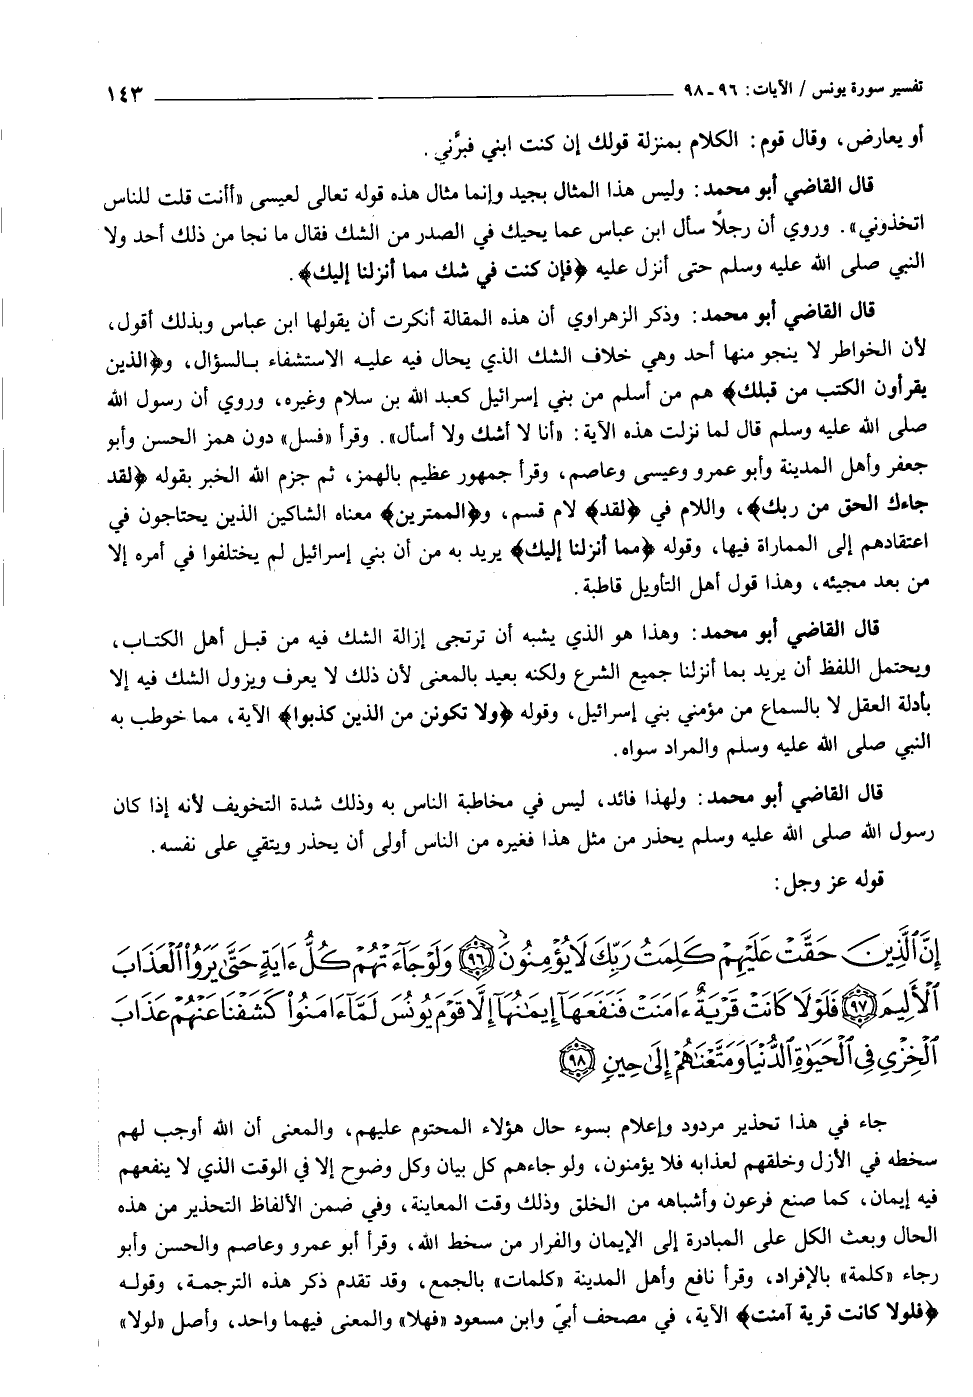 تفسير سورة يونس / الآيات: ٩٦ - ٩٨ ١٤٣
أو يعارض، وقال قوم: الكلام بمنزلة قولك إن كنت ابني فبرَّني.
قال القاضي أبو محمد: وليس هذا المثال بجيد وإنما مثال هذه قوله تعالى لعيسى «أأنت قلت للناس
اتخذوني». وروي أن رجلاً سأل ابن عباس عما يحيك في الصدر من الشك فقال ما نجا من ذلك أحد ولا
النبي صلى الله عليه وسلم حتى أنزل عليه ﴿فإن كنت في شك مما أنزلنا إليك﴾.
قال القاضي أبو محمد: وذكر الزهراوي أن هذه المقالة أنكرت أن يقولها ابن عباس وبذلك أقول،
لأن الخواطر لا ينجو منها أحد وهي خلاف الشك الذي يحال فيه عليه الاستشفاء بالسؤال، و﴿الذين
يقرأون الكتب من قبلك﴾ هم من أسلم من بني إسرائيل كعبد الله بن سلام وغيره، وروي أن رسول الله
صلى الله عليه وسلم قال لما نزلت هذه الآية: «أنا لا أشك ولا أسأل». وقرأ «فسل» دون همز الحسن وأبو
جعفر وأهل المدينة وأبو عمرو وعيسى وعاصم، وقرأ جمهور عظيم بالهمز، ثم جزم الله الخبر بقوله ﴿لقد
جاءك الحق من ربك﴾، واللام في ﴿لقد﴾ لام قسم، و﴿الممترين﴾ معناه الشاكين الذين يحتاجون في
اعتقادهم إلى المماراة فيها، وقوله ﴿مما أنزلنا إليك﴾ يريد به من أن بني إسرائيل لم يختلفوا في أمره إلا
من بعد مجيئه، وهذا قول أهل التأويل قاطبة.
قال القاضي أبو محمد: وهذا هو الذي يشبه أن ترتجى إزالة الشك فيه من قبل أهل الكتاب،
ويحتمل اللفظ أن يريد بما أنزلنا جميع الشرع ولكنه بعيد بالمعنى لأن ذلك لا يعرف ويزول الشك فيه إلا
بأدلة العقل لا بالسماع من مؤمني بني إسرائيل، وقوله ﴿ولا تكونن من الذين كذبوا﴾ الآية، مما خوطب به
النبي صلى الله عليه وسلم والمراد سواه.
قال القاضي أبو محمد: ولهذا فائد، ليس في مخاطبة الناس به وذلك شدة التخويف لأنه إذا كان
رسول الله صلى الله عليه وسلم يحذر من مثل هذا فغيره من الناس أولى أن يحذر ويتقي على نفسه.
قوله عز وجل:
إِنَّ ٱلَّذِينَ حَقَّتْ عَلَيْهِمْ كَلِمَتُ رَبِّكَ لَا يُؤْمِنُونَ ﴿٩٦﴾ وَلَوْ جَآءَتْهُمْ كُلُّ ءَايَةٍ حَتَّىٰ يَرَوُا۟ ٱلْعَذَابَ
ٱلْأَلِيمَ ﴿٩٧﴾ فَلَوْلَا كَانَتْ قَرْيَةٌ ءَامَنَتْ فَنَفَعَهَآ إِيمَٰنُهَآ إِلَّا قَوْمَ يُونُسَ لَمَّآ ءَامَنُوا۟ كَشَفْنَا عَنْهُمْ عَذَابَ
ٱلْخِزْىِ فِى ٱلْحَيَوٰةِ ٱلدُّنْيَا وَمَتَّعْنَٰهُمْ إِلَىٰ حِينٍ ﴿٩٨﴾
جاء في هذا تحذير مردود وإعلام بسوء حال هؤلاء المحتوم عليهم، والمعنى أن الله أوجب لهم
سخطه في الأزل وخلقهم لعذابه فلا يؤمنون، ولو جاءهم كل بيان وكل وضوح إلا في الوقت الذي لا ينفعهم
فيه إيمان، كما صنع فرعون وأشباهه من الخلق وذلك وقت المعاينة، وفي ضمن الألفاظ التحذير من هذه
الحال وبعث الكل على المبادرة إلى الإيمان والفرار من سخط الله، وقرأ أبو عمرو وعاصم والحسن وأبو
رجاء «كلمة» بالإفراد، وقرأ نافع وأهل المدينة «كلمات» بالجمع، وقد تقدم ذكر هذه الترجمة، وقوله
﴿فلولا كانت قرية آمنت﴾ الآية، في مصحف أبيّ وابن مسعود «فهلا» والمعنى فيهما واحد، وأصل «لولا»